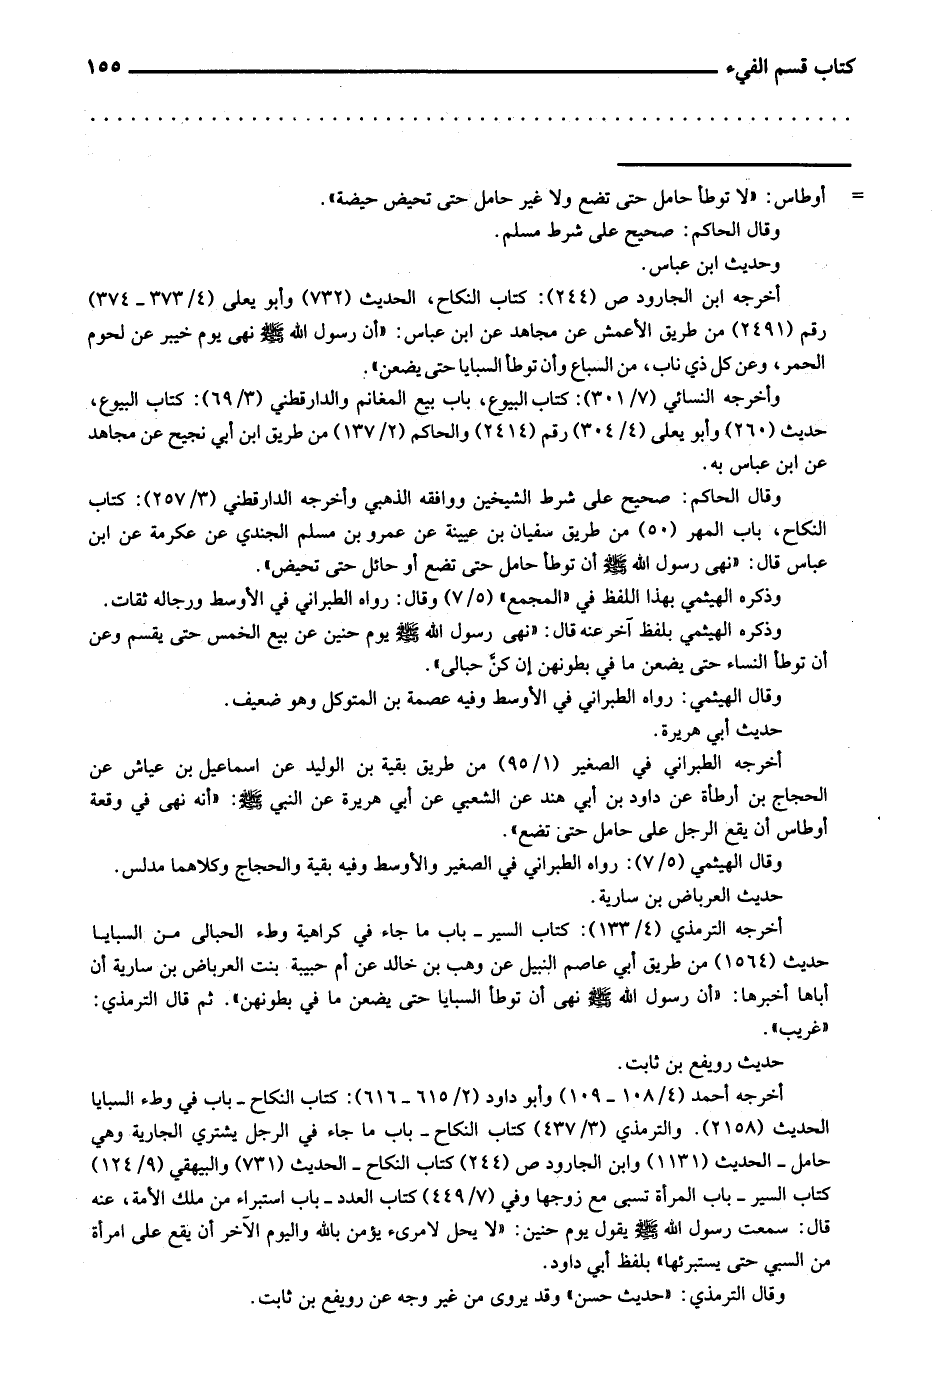 كتاب قسم الفيء ١٥٥
= أوطاس: «لا توطأ حامل حتى تضع ولا غير حامل حتى تحيض حيضة».
وقال الحاكم: صحيح على شرط مسلم.
وحديث ابن عباس.
أخرجه ابن الجارود ص (٢٤٤): كتاب النكاح، الحديث (٧٣٢) وأبو يعلى (٤/ ٣٧٣ ـ ٣٧٤)
رقم (٢٤٩١) من طريق الأعمش عن مجاهد عن ابن عباس: «أن رسول الله ﷺ نهى يوم خيبر عن لحوم
الحمر، وعن كل ذي ناب، من السباع وأن توطأ السبايا حتى يضعن».
وأخرجه النسائي (٧/ ٣٠١): كتاب البيوع، باب بيع المغانم والدارقطني (٣/ ٦٩): كتاب البيوع،
حديث (٢٦٠) وأبو يعلى (٤/ ٣٠٤) رقم (٢٤١٤) والحاكم (٢/ ١٣٧) من طريق ابن أبي نجيح عن مجاهد
عن ابن عباس به.
وقال الحاكم: صحيح على شرط الشيخين ووافقه الذهبي وأخرجه الدارقطني (٣/ ٢٥٧): كتاب
النكاح، باب المهر (٥٠) من طريق سفيان بن عيينة عن عمرو بن مسلم الجندي عن عكرمة عن ابن
عباس قال: «نهى رسول الله ﷺ أن توطأ حامل حتى تضع أو حائل حتى تحيض».
وذكره الهيثمي بهذا اللفظ في «المجمع» (٥/ ٧) وقال: رواه الطبراني في الأوسط ورجاله ثقات.
وذكره الهيثمي بلفظ آخر عنه قال: «نهى رسول الله ﷺ يوم حنين عن بيع الخمس حتى يقسم وعن
أن توطأ النساء حتى يضعن ما في بطونهن إن كنَّ حبالى».
وقال الهيثمي: رواه الطبراني في الأوسط وفيه عصمة بن المتوكل وهو ضعيف.
حديث أبي هريرة.
أخرجه الطبراني في الصغير (١/ ٩٥) من طريق بقية بن الوليد عن اسماعيل بن عياش عن
الحجاج بن أرطأة عن داود بن أبي هند عن الشعبي عن أبي هريرة عن النبي ﷺ: «أنه نهى في وقعة
أوطاس أن يقع الرجل على حامل حتى تضع».
وقال الهيثمي (٥/ ٧): رواه الطبراني في الصغير والأوسط وفيه بقية والحجاج وكلاهما مدلس.
حديث العرباض بن سارية.
أخرجه الترمذي (٤/ ١٣٣): كتاب السير ـ باب ما جاء في كراهية وطء الحبالى من السبايا
حديث (١٥٦٤) من طريق أبي عاصم النبيل عن وهب بن خالد عن أم حبيبة بنت العرباض بن سارية أن
أباها أخبرها: «أن رسول الله ﷺ نهى أن توطأ السبايا حتى يضعن ما في بطونهن». ثم قال الترمذي:
«غريب».
حديث رويفع بن ثابت.
أخرجه أحمد (٤/ ١٠٨ ـ ١٠٩) وأبو داود (٢/ ٦١٥ ـ ٦١٦): كتاب النكاح ـ باب في وطء السبايا
الحديث (٢١٥٨). والترمذي (٣/ ٤٣٧) كتاب النكاح ـ باب ما جاء في الرجل يشتري الجارية وهي
حامل ـ الحديث (١١٣١) وابن الجارود ص (٢٤٤) كتاب النكاح ـ الحديث (٧٣١) والبيهقي (٩/ ١٢٤)
كتاب السير ـ باب المرأة تسبى مع زوجها وفي (٧/ ٤٤٩) كتاب العدد ـ باب استبراء من ملك الأمة، عنه
قال: سمعت رسول الله ﷺ يقول يوم حنين: «لا يحل لامرىء يؤمن بالله واليوم الآخر أن يقع على امرأة
من السبي حتى يستبرئها» بلفظ أبي داود.
وقال الترمذي: «حديث حسن» وقد يروى من غير وجه عن رويفع بن ثابت.